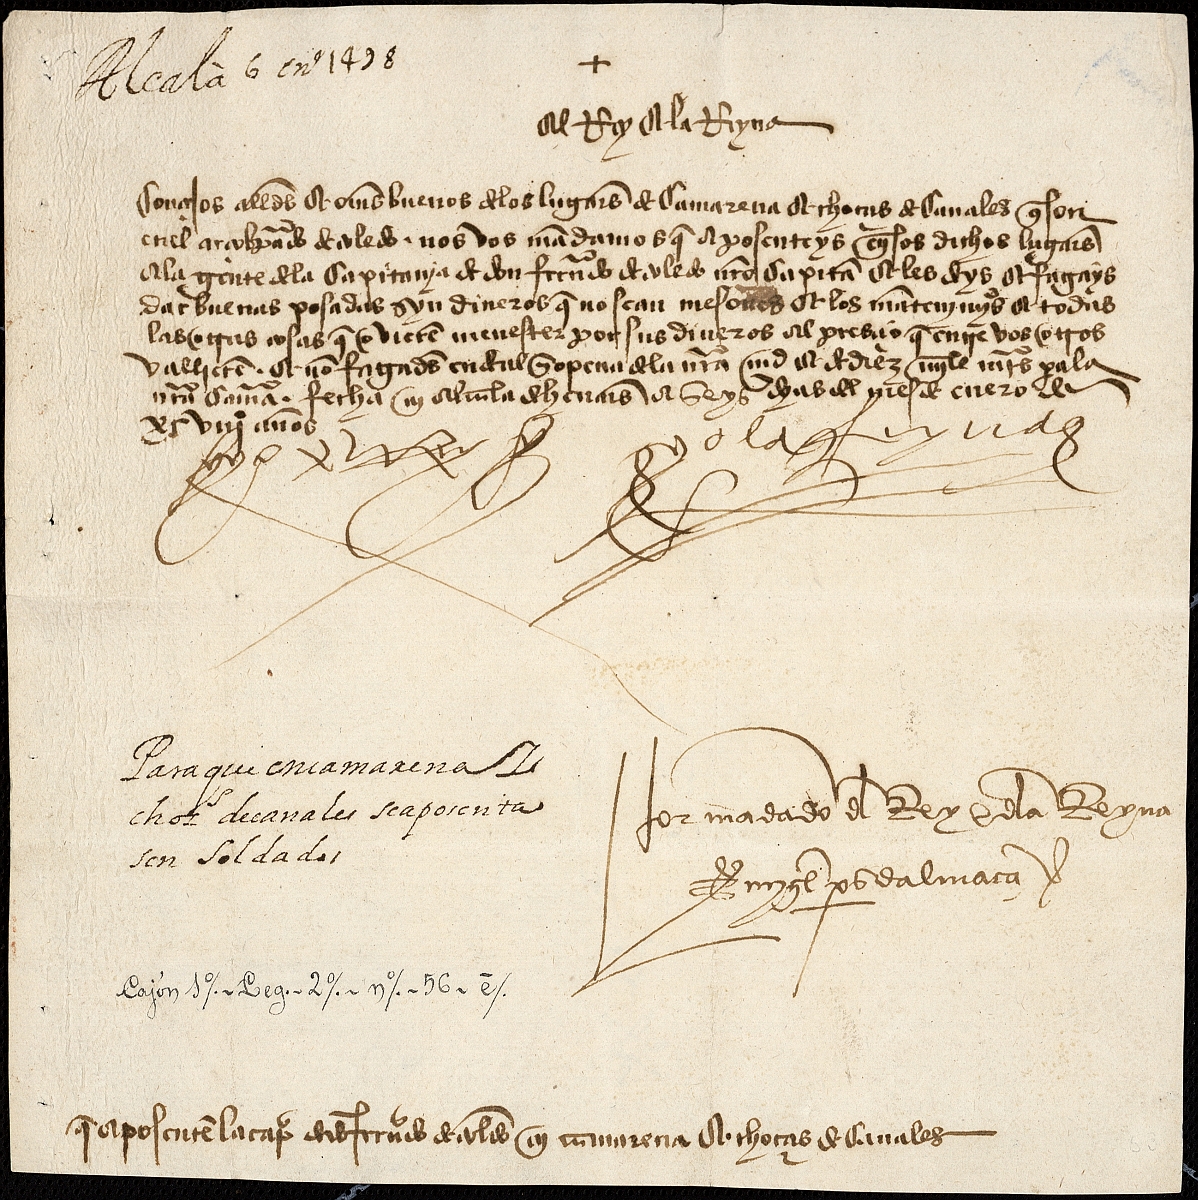 Alcalà 6 enº 1498
+
El Rey E la Reyna
Conçejos alldes E oms buenos de los lugares de Camarena E chocas de Canales q son
en el arçobpado de toledo . nos vos mãdamos q aposenteys en esos dichos lugares
a la gente de la Capitanja de don ferrdo de toledo nro Capitã E les deys E fagays
dar buenas posadas syn dineros q no sean mesones E los mãtenymyºs E todas
las otras cosas q ovierē menester por sus dineros al presçio q entre vos otros
vallierē . E nõ fagades ende al so pena de la nra mrd E de diez mill mrs pa la
nra Camã . fecha en alcala de henares a seys dyas del mes de enero de
xc viijº años
yo el Rey yo la Reyna
Para que en camarena y
choz.s de canales se aposenta
sen soldados
Por mãdado dl Rey E dla Reyna
miguel ps dalmaçã
Cajón 1º/. ~ Leg. ~ 2º/. ~ nº/. ~ 56 ~ ē/.
q aposentē la capª de dõ ferrdo de toldo en camarena E chocas de Canales